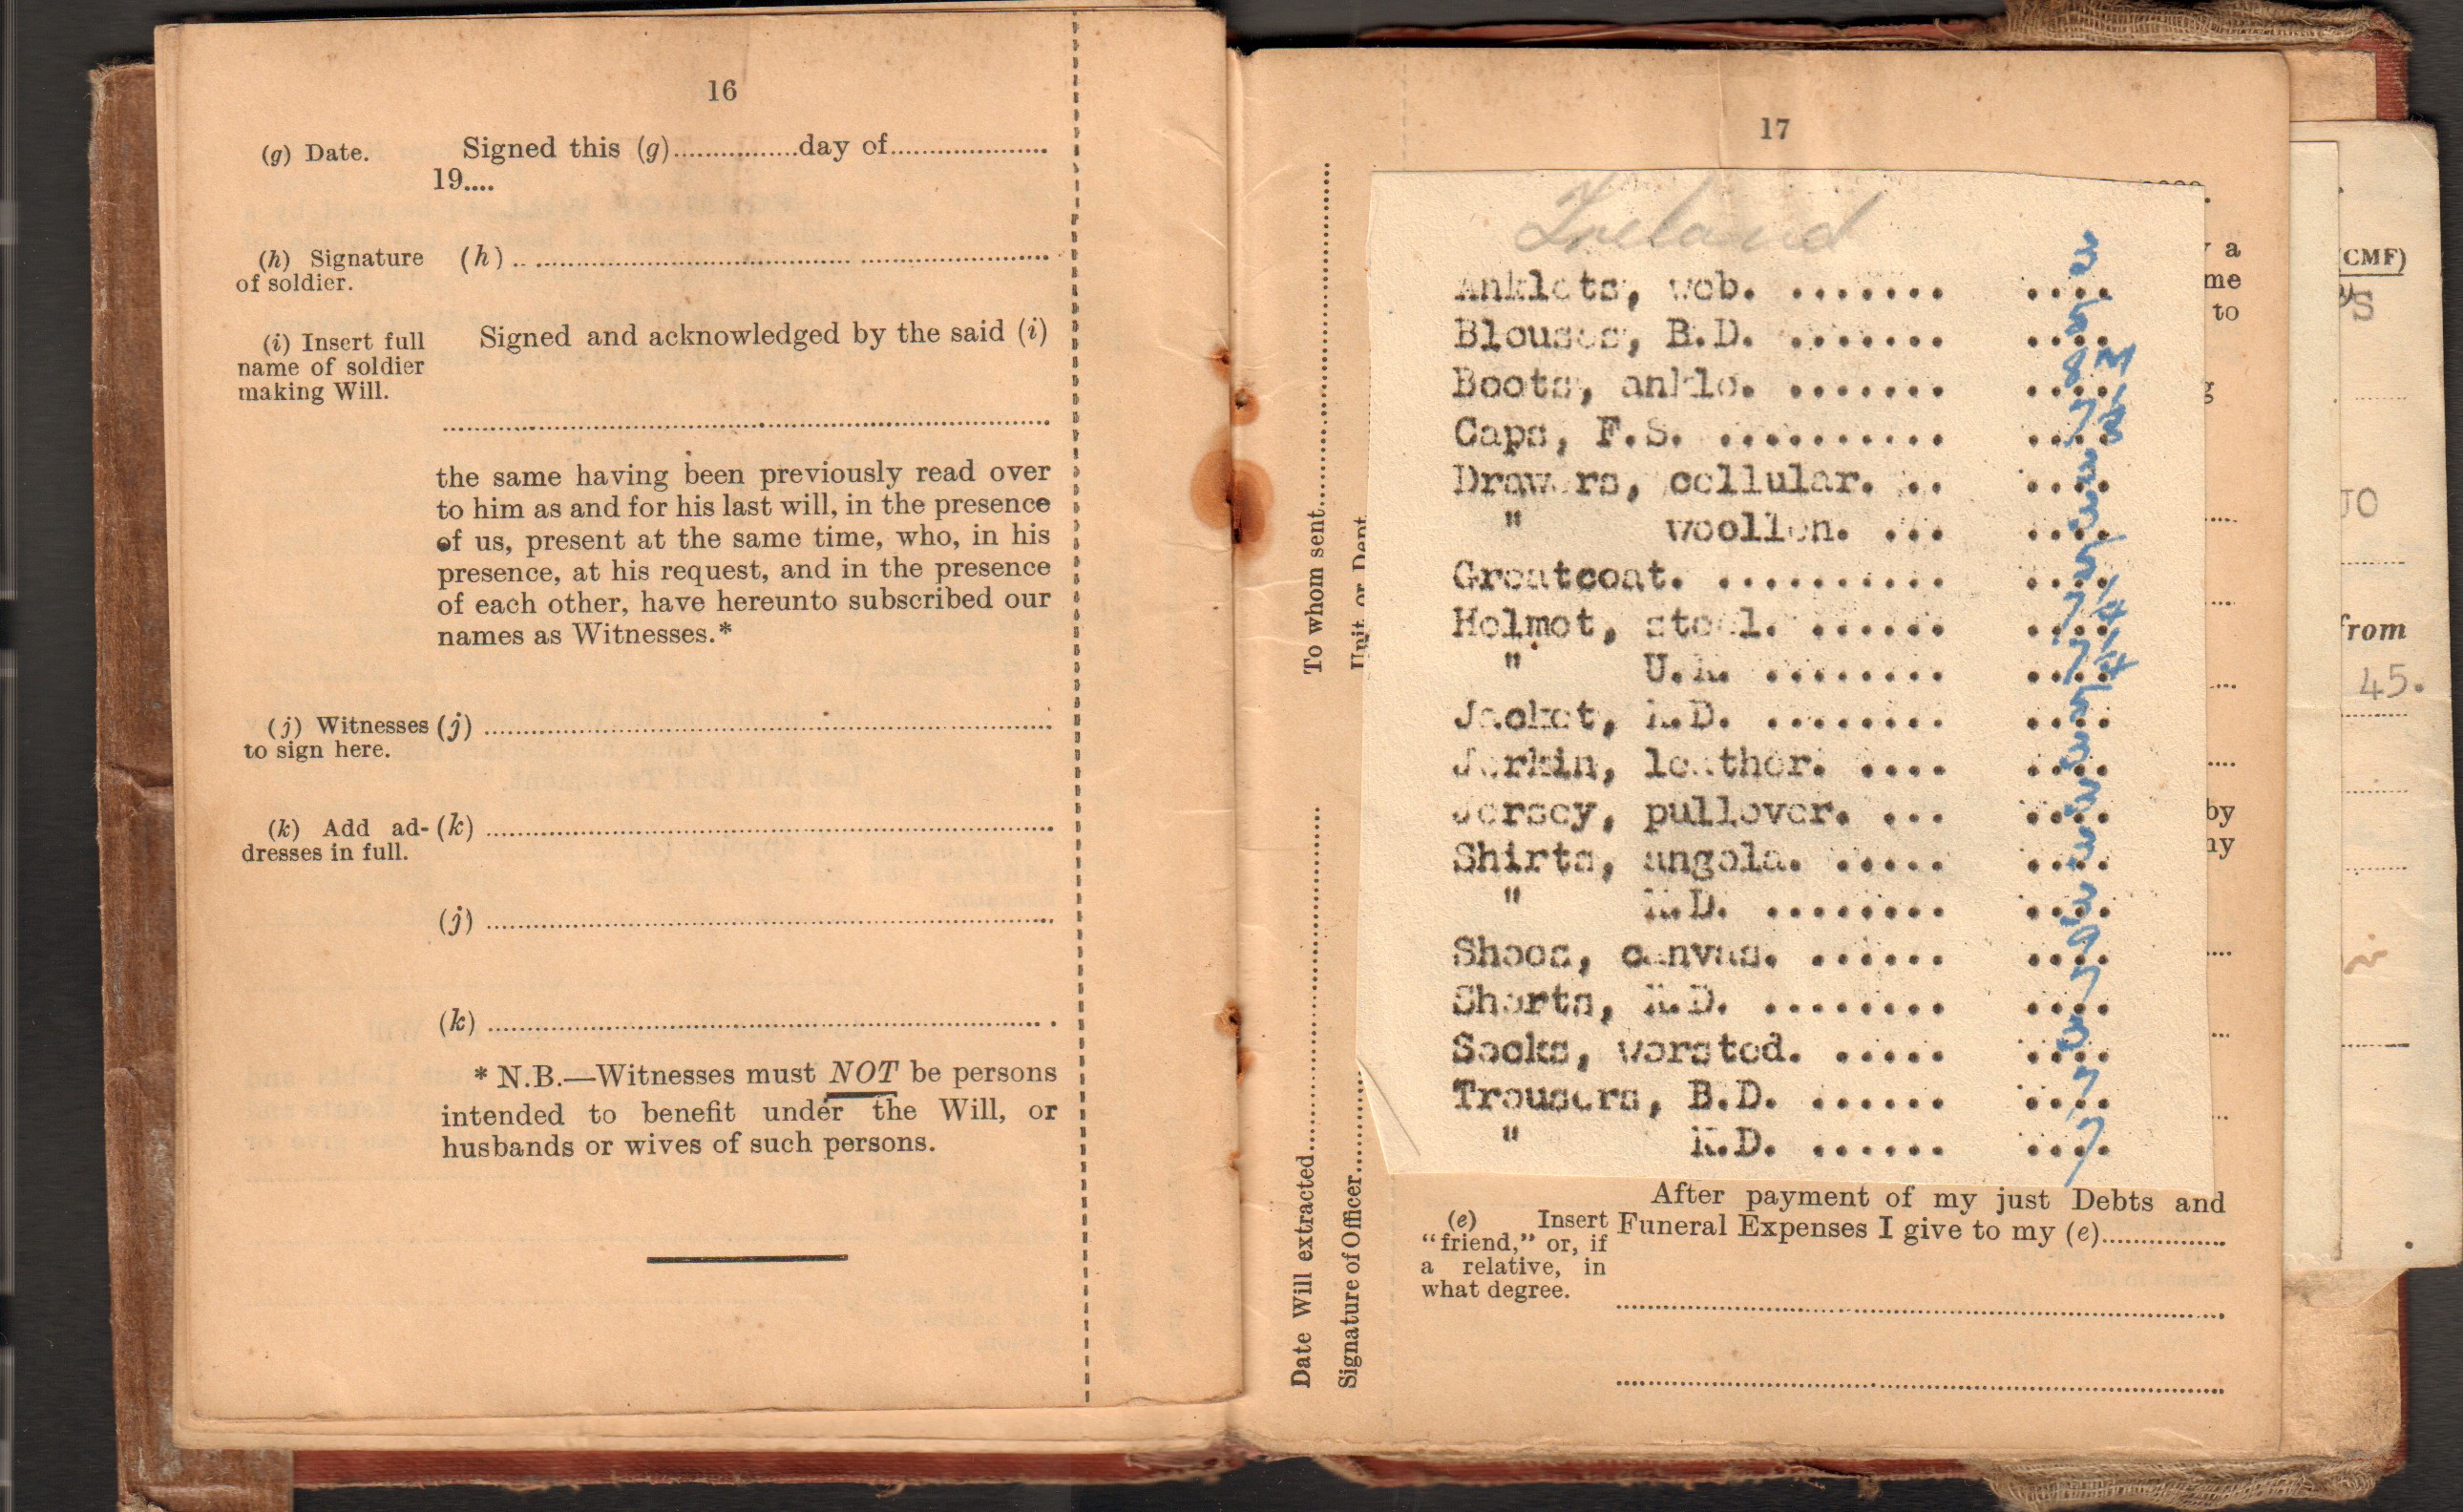 16
(g) Date.
Signed this (g)................day of....................
19....
(h) Signature
of soldier.
(h)
(i) Insert full
name of soldier
making Will.
Signed and acknowledged by the said (i)
the same having been previously read over
to him as and for his last will, in the presence
of us, present at the same time, who, in his
presence, at his request, and in the presence
of each other, have hereunto subscribed our
names as Witnesses.*
(j) Witnesses
to sign here.
(j)
(k) Add ad-
dresses in full.
(k)
(j)
(k)
* N.B.—Witnesses must NOT be persons
intended to benefit under the Will, or
husbands or wives of such persons.
17
To whom sent
Unit or Dept
Date Will extracted
Signature of Officer
Ireland
Anklets, web. ....... ....3
Blouses, B.D. ....... ....5
Boots, ankle. ....... ....8 M
Caps, F.S. .......... ....7 1/8
Drawers, cellular. .. ....3
" woollen. ... ....3
Greatcoat. .......... ....5
Helmet, steel. ...... ....7 1/4
" U.K. ........ ....7 1/4
Jacket, K.D. ........ ....5
Jerkin, leather. .... ....3
Jersey, pullover. ... ....3
Shirts, angola. ..... ....3
" K.D. ........ ....3
Shoes, canvas. ...... ....9
Shorts, K.D. ........ ....7
Socks, worsted. ..... ....3
Trousers, B.D. ...... ....7
" K.D. ...... ....7
After payment of my just Debts and
Funeral Expenses I give to my (e)................
(e) Insert
"friend," or, if
a relative, in
what degree.
a
me
to
by
(CMF)
from
45.